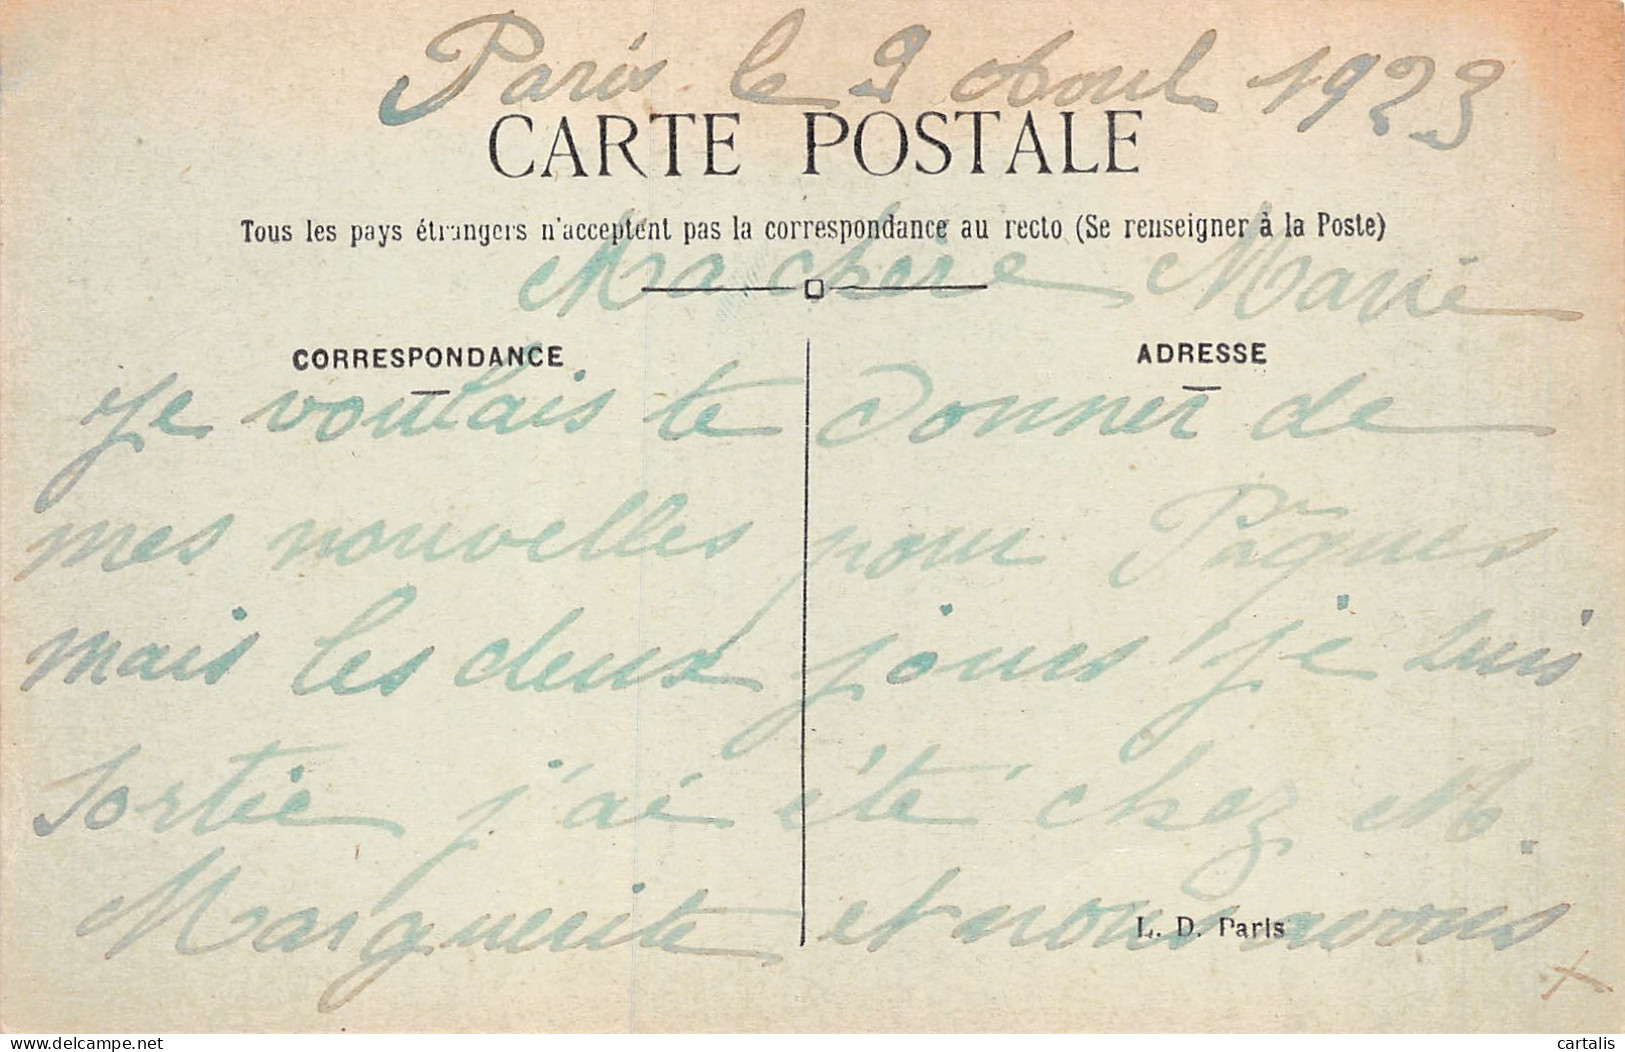 Paris le 9 Aoul 1923
CARTE POSTALE
Tous les pays étrangers n'acceptent pas la correspondance au recto (Se renseigner à la Poste)
Ma chère Marie
CORRESPONDANCE
ADRESSE
Je voulais te donner de
mes nouvelles pour Pâques
mais les deux jours je suis
sortie j'ai été chez M.
Marguerite et nous avons
L. D. Paris
cartalis